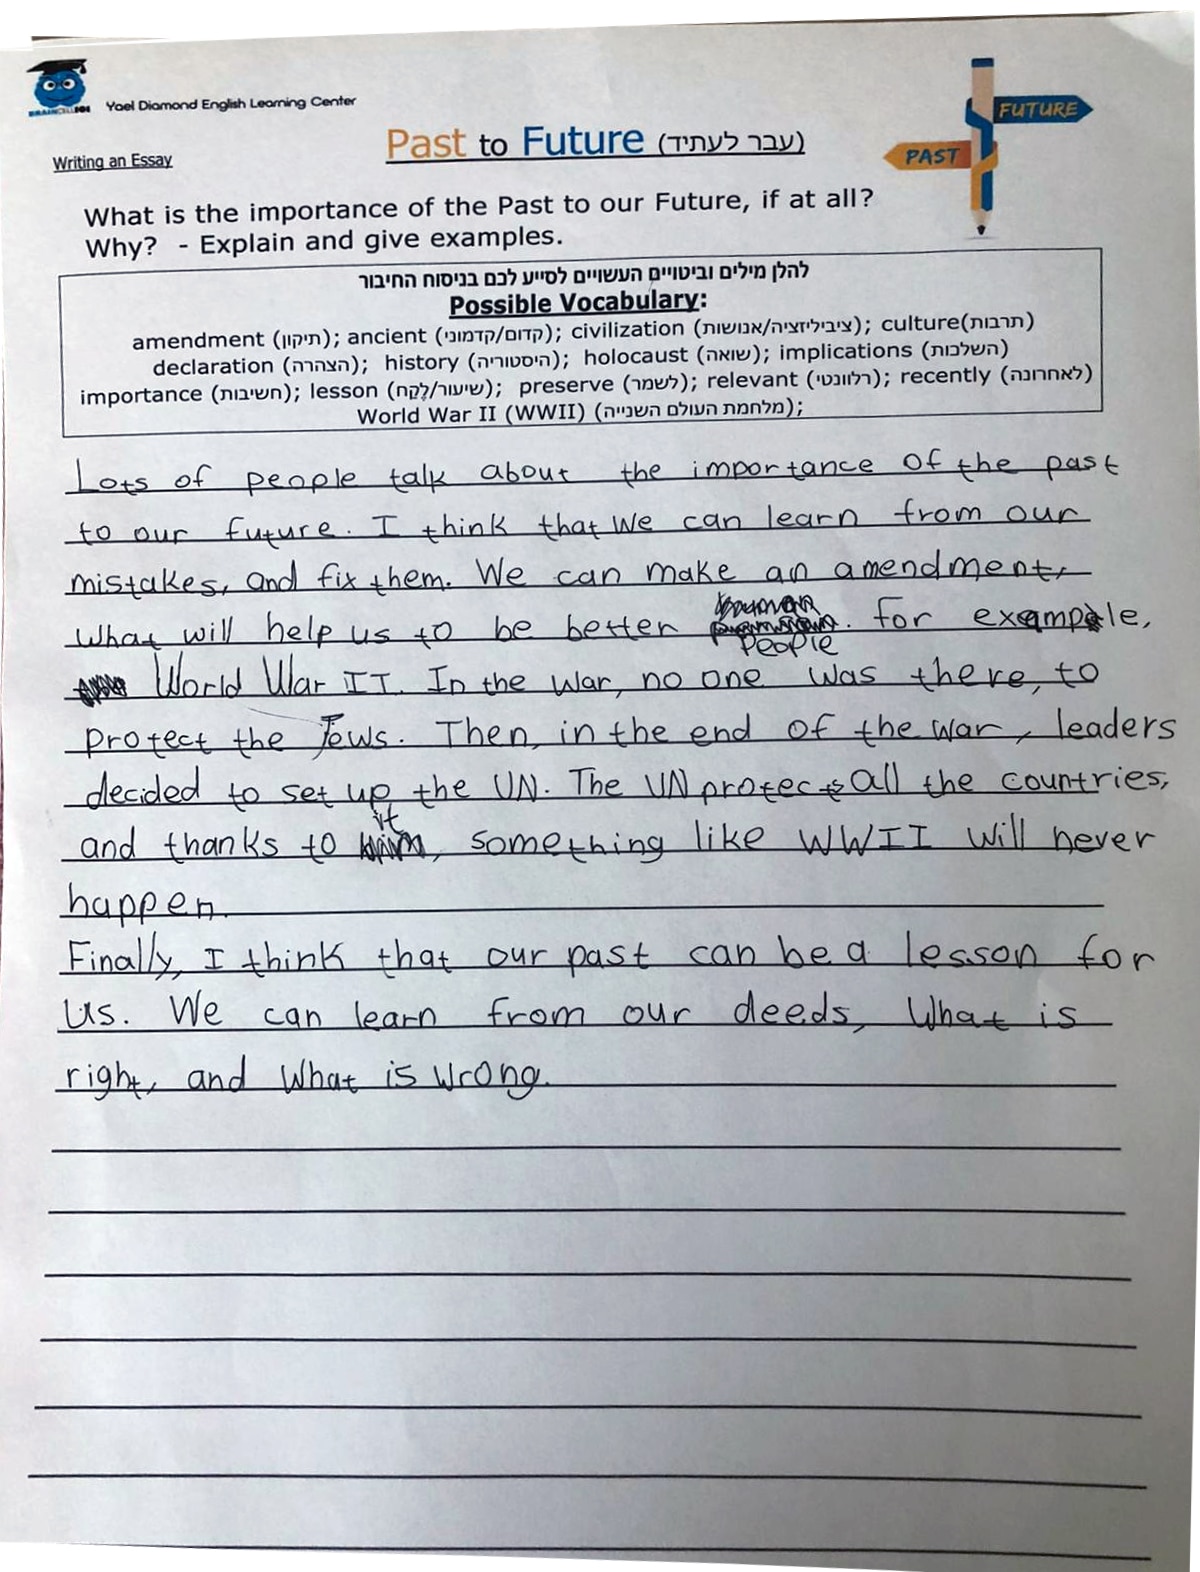 BRAINCELL101 Yael Diamond English Learning Center
FUTURE
PAST
Past to Future (עבר לעתיד)
Writing an Essay
What is the importance of the Past to our Future, if at all?
Why? - Explain and give examples.
להלן מילים וביטויים העשויים לסייע לכם בניסוח החיבור
Possible Vocabulary:
amendment (תיקון); ancient (קדום/קדמוני); civilization (ציביליזציה/אנושות); culture(תרבות)
declaration (הצהרה); history (היסטוריה); holocaust (שואה); implications (השלכות)
importance (חשיבות); lesson (שיעור/לֶקַח); preserve (לשמר); relevant (רלוונטי); recently (לאחרונה)
World War II (WWII) (מלחמת העולם השנייה);
Lots of people talk about the importance of the past
to our future. I think that we can learn from our
mistakes, and fix them. We can make an amendment,
what will help us to be better people. For example,
World War II. In the war, no one was there, to
protect the Jews. Then, in the end of the war, leaders
decided to set up the UN. The UN protects all the countries,
and thanks to it, something like WWII will never
happen.
Finally, I think that our past can be a lesson for
us. We can learn from our deeds, what is
right, and what is wrong.